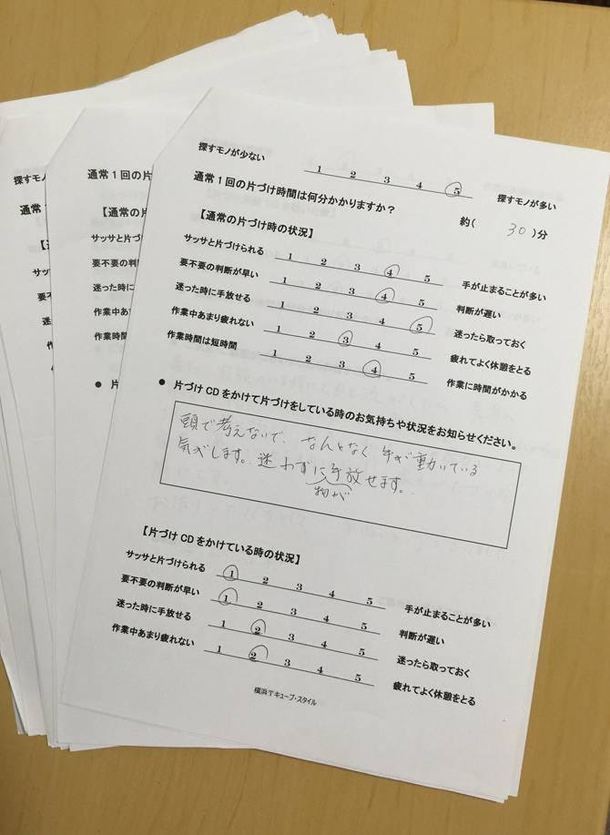 探すモノが少ない 1 2 3 4 5 探すモノが多い
通常1回の片づけ時間は何分かかりますか? 約( 30 )分
【通常の片づけ時の状況】
サッサと片づけられる 1 2 3 4 5 手が止まることが多い
要不要の判断が早い 1 2 3 4 5 判断が遅い
迷った時に手放せる 1 2 3 4 5 迷ったら取っておく
作業中あまり疲れない 1 2 3 4 5 疲れてよく休憩をとる
作業時間は短時間 1 2 3 4 5 作業に時間がかかる
● 片づけCDをかけて片づけをしている時のお気持ちや状況をお知らせください。
頭で考えないで、なんとなく手が動いている
気がします。迷わずに手放せます。
物が
【片づけCDをかけている時の状況】
サッサと片づけられる 1 2 3 4 5 手が止まることが多い
要不要の判断が早い 1 2 3 4 5 判断が遅い
迷った時に手放せる 1 2 3 4 5 迷ったら取っておく
作業中あまり疲れない 1 2 3 4 5 疲れてよく休憩をとる
横浜Tキューブ・スタイル
探すモノ
通常
サッサ
要不
迷っ
作業
作業時
通常1回の片
【通常の片
サッサと片づ
要不要の判
迷った時に
作業中あま
作業時間
● 片